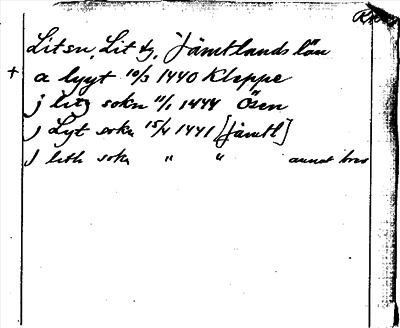 Litsn, Lit tg, Jämtlands län
+ a lyyt 10/3 1440 Kleppe
j litz sokn 11/1 1444 Ösen
j Lyt sokn 15/4 1441 [Jämtl]
j lith sokn " " annat brev